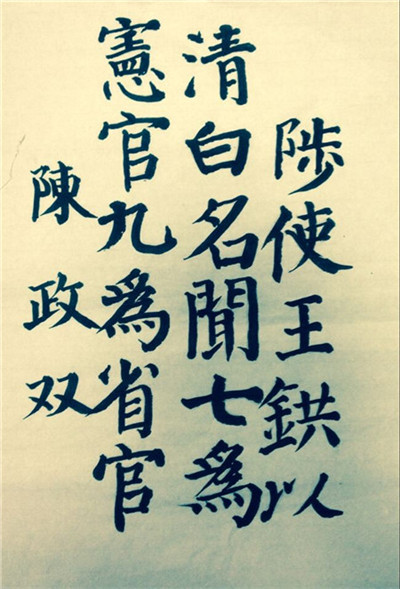 陟使王鉷以
清白名聞七爲
憲官九爲省官
陳政双